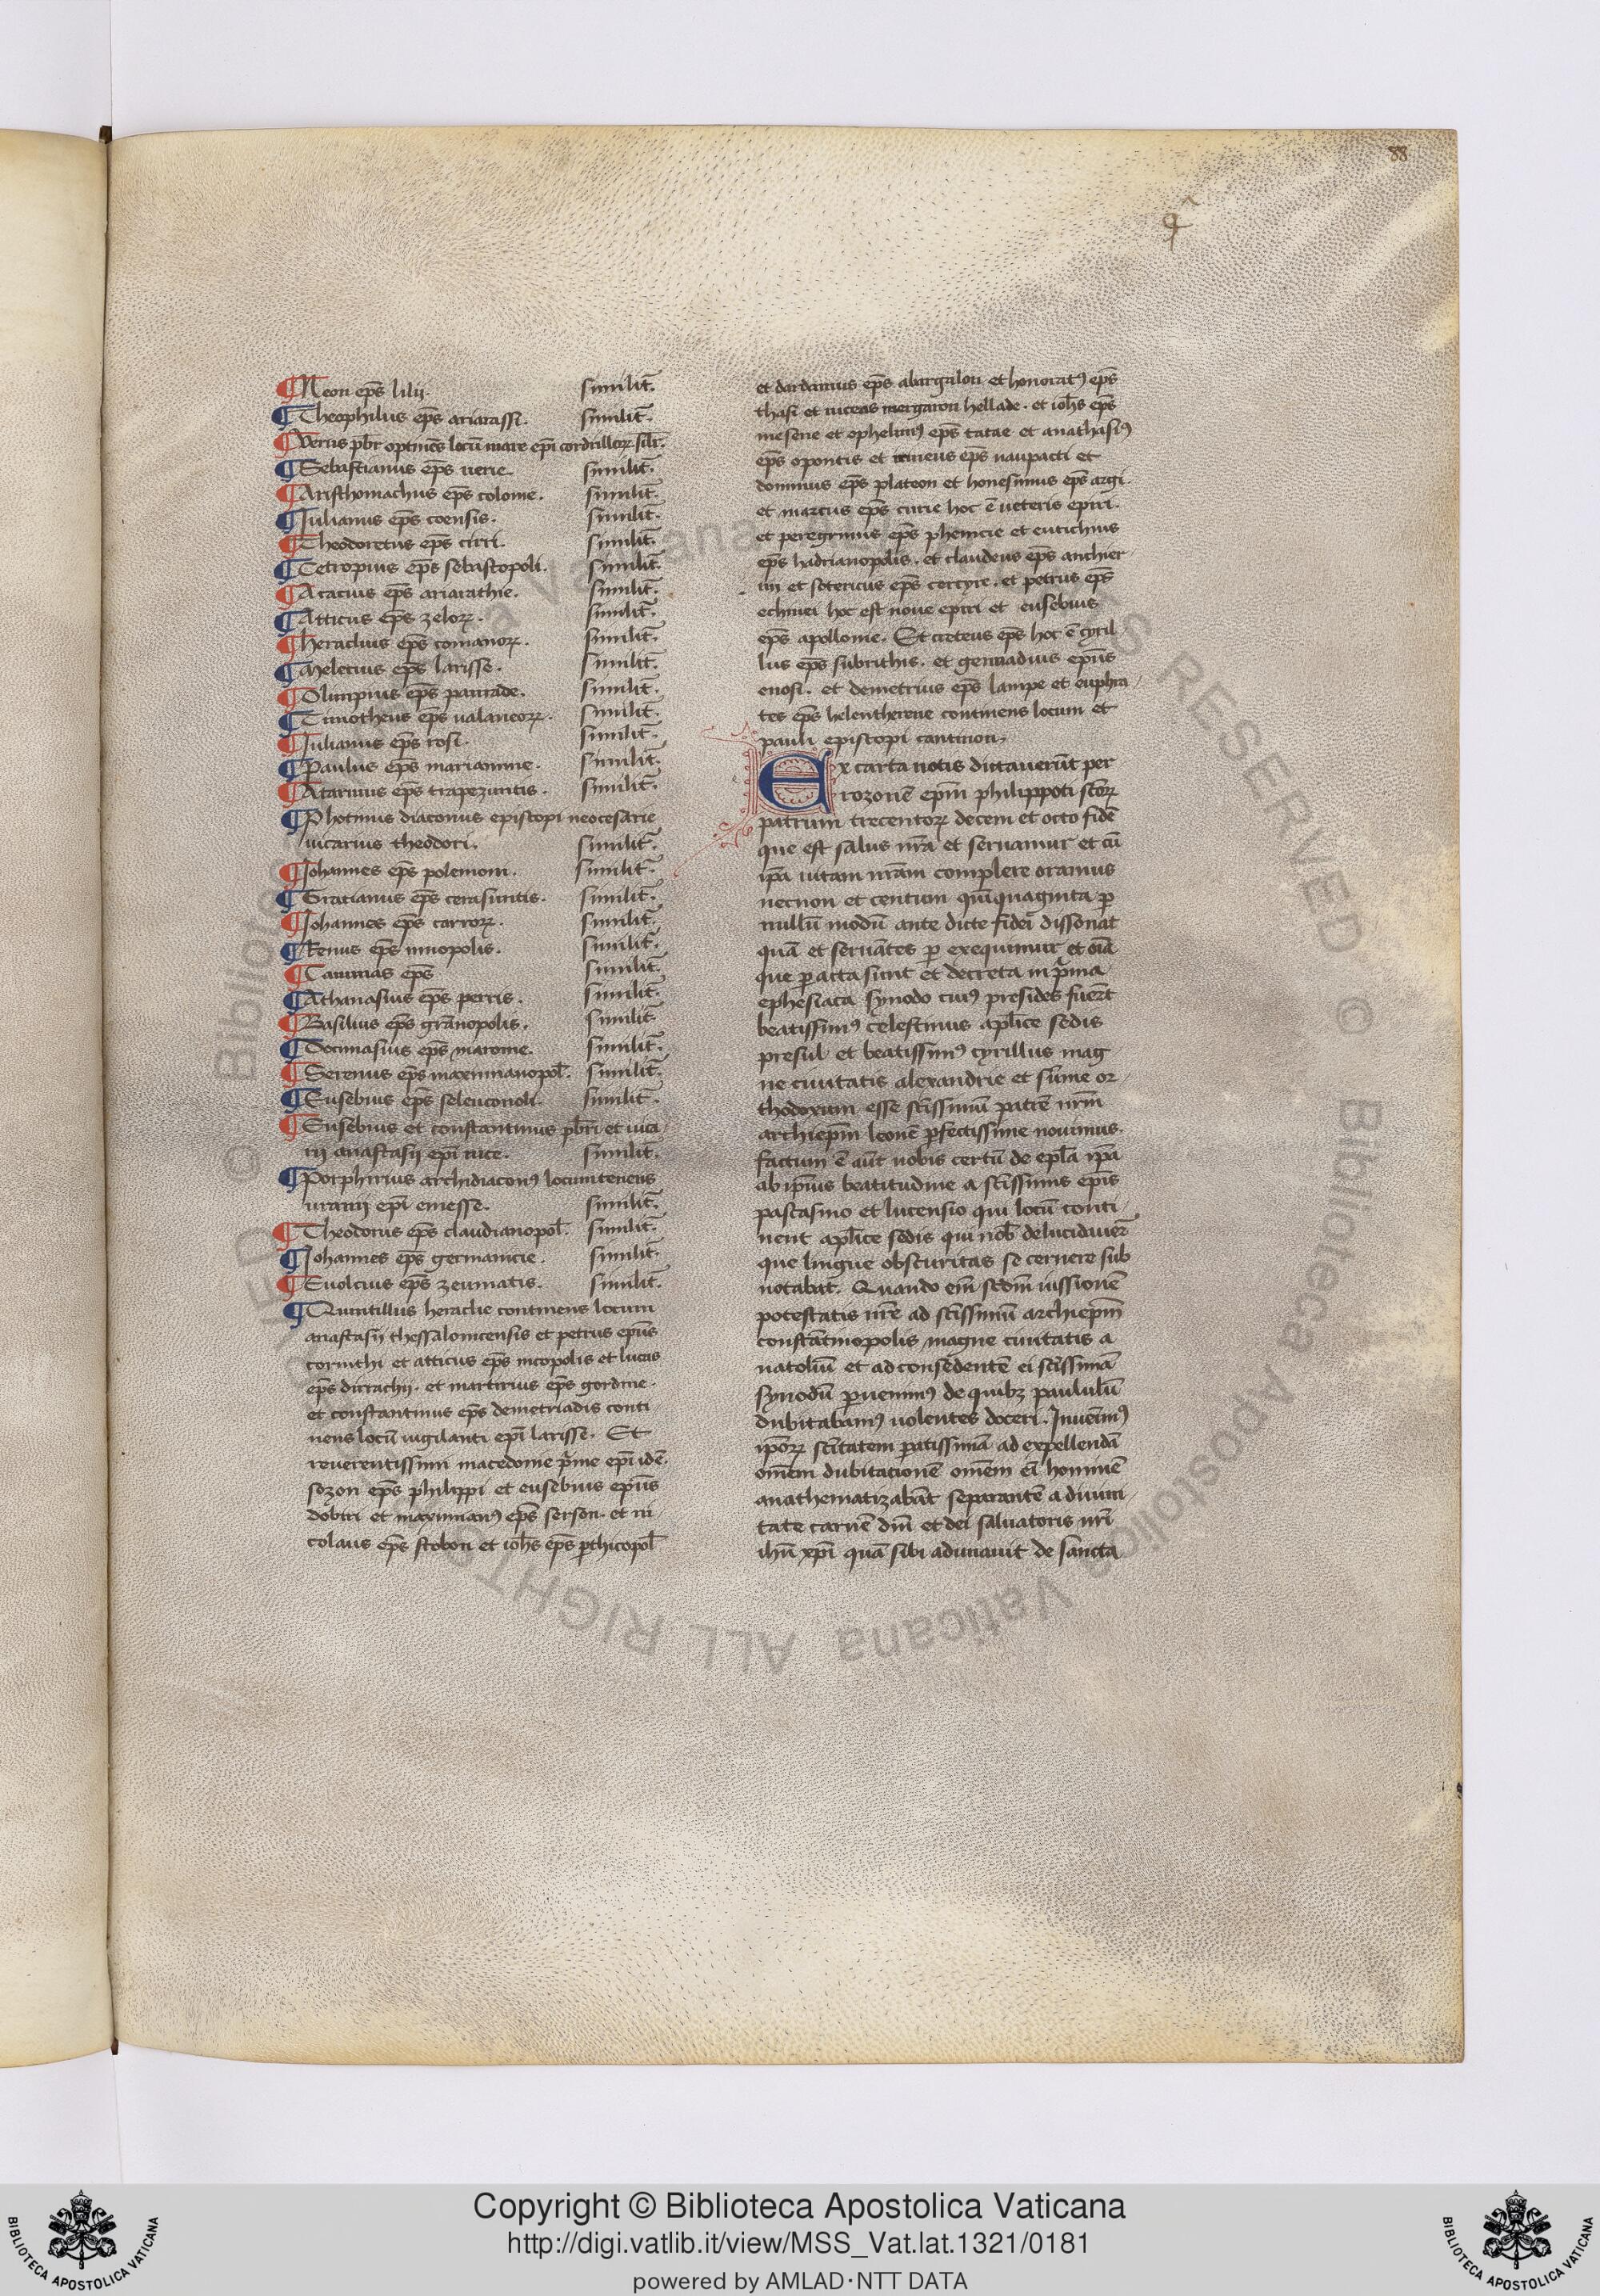 88
¶ Neon ep̄s lilij. similit̄.
¶ Theophilus ep̄s ariarassi. similit̄.
¶ Verus pb̄r optinēs locū mare ep̄i cordrilloꝝ sil̄r.
¶ Sebastianus ep̄s uerie. similit̄.
¶ Aristhomachus ep̄s colonie. similit̄.
¶ Julianus ep̄s coensis. similit̄.
¶ Theodoretus ep̄s cirri. similit̄.
¶ Cetropius ep̄s sebastopoli. similit̄.
¶ Acacius ep̄s ariarathie. similit̄.
¶ Atticus ep̄s zeloꝝ. similit̄.
¶ heraclius ep̄s comanoꝝ. similit̄.
¶ Meletius ep̄s larisse. similit̄.
¶ Olimpius ep̄s paniade. similit̄.
¶ Timotheus ep̄s ualaneoꝝ. similit̄.
¶ Julianus ep̄s rosi. similit̄.
¶ Paulus ep̄s mariamme. similit̄.
¶ Atarinus ep̄s trapezuntis. similit̄.
¶ Photinus diaconus episcopi neocesarie
uicarius theodori. similit̄.
¶ Johannes ep̄s polemoni. similit̄.
¶ Gratianus ep̄s cerasuntis. similit̄.
¶ Johannes ep̄s carroꝝ. similit̄.
¶ Renus ep̄s innopolis. similit̄.
¶ Caiumas ep̄s similit̄.
¶ Athanasius ep̄s perris. similit̄.
¶ Basilius ep̄s grānopolis. similit̄.
¶ Docimasius ep̄s maronie. similit̄.
¶ Serenus ep̄s maximianopol̄. similit̄.
¶ Eusebius ep̄s seleuconoli. similit̄.
¶ Eusebius et constantinus pb̄ri et uica
rii anastasij ep̄i nice. similit̄.
¶ Porphirius archidiaconꝰ locumtenens
uranij ep̄i emesse. similit̄.
¶ Theodorus ep̄s claudianopol̄. similit̄.
¶ Johannes ep̄s germanicie. similit̄.
¶ Euolcius ep̄s zeumatis. similit̄.
¶ Quintillus heraclie continens locum
anastasij thessalonicensis et petrus epūs
corinthi et atticus ep̄s nicopolis et lucas
ep̄s dirrachij. et martirius ep̄s gordine.
et constantinus ep̄s demetriadis conti
nens locū uigilanti ep̄i larisse. Et
reuerentissimi macedonie p̄me ep̄i idē.
sozon ep̄s philippi et eusebius epūs
dobiri et maximianꝰ ep̄s serson. et ni
colaus ep̄s stobon et ioh̄s ep̄s ꝑthicopol̄
et dardanius ep̄s abargalon et honoratꝰ ep̄s
thasi et niceas mergaron hellade. et ioh̄s ep̄s
mesene et ophelimꝰ ep̄s tatae et anathasiꝰ
ep̄s opontis et ep̄s naupacti et
domnius ep̄s plateon et honesimus ep̄s argi.
et marcus ep̄s curie hoc ē ueteris epiri.
et peregrinus ep̄s phenicie et eutichius
ep̄s hadrianopolis. et claudeus ep̄s anchier
ni et sotericus ep̄s corcyre. et petrus ep̄s
echinei hoc est noue epiri et eusebius
ep̄s apollonie. Et creteus ep̄s hoc ē cyril
lus ep̄s subrithis. et gennadius epūs
enosi. et demetrius ep̄s lampe et euphra
tes ep̄s helentherne continens locum et
pauli episcopi cantinon.
Ex carta notis dictauerūt per
rozonē ep̄m philippoti sc̄oꝝ
patrum trecentoꝝ decem et octo fidē
que est salus nr̄a et seruamur et cū
ip̄a uitam nr̄am complere oramus
necnon et centum quīquaginta ꝑ
nullū modū ante dicte fidei dissonāt
quā et seruātes ꝑ exequimur et oīa
que ꝑ acta sunt et decreta in p̄ma
ephesiaca synodo cuiꝰ presides fuer̄t
beatissimꝰ celestinus apl̄ice sedis
presul et beatissimꝰ cyrillus mag
ne ciuitatis alexandrie et sūme or
thodoxum esse sc̄issimū patrē nr̄m
archiep̄m leonē ꝑfectissime nouimus.
factum ē aūt nobis certū de epl̄a ip̄a
ab ip̄ius beatitudine a sc̄issimis ep̄is
pascasino et lucensio qui locū conti
nent apl̄ice sedis qui nob̄ delucidauer̄
que lingue obscuritas se cernere sub
notabat̄. Quando eī sc̄dm̄ iussionē
potestatis nr̄e ad sc̄issimū archiep̄m
constātinopolis magne ciuitatis a
natoliū et ad consedentē ei sc̄issimā
synodū ꝑuenimꝰ de quibꝫ paululū
dubitabamꝰ uolentes doceri. Inuenimꝰ
ip̄oꝝ sc̄itatem ꝑatissimā ad expellendā
om̄em dubitationē om̄em eī hominē
anathematizabāt separantē a diuini
tate carnē dn̄i et dei saluatoris nr̄i
ih̄u xp̄i quā sibi adunauit de sancta
Copyright © Biblioteca Apostolica Vaticana
http://digi.vatlib.it/view/MSS_Vat.lat.1321/0181
powered by AMLAD·NTT DATA
BIBLIOTECA APOSTOLICA VATICANA
BIBLIOTECA APOSTOLICA VATICANA